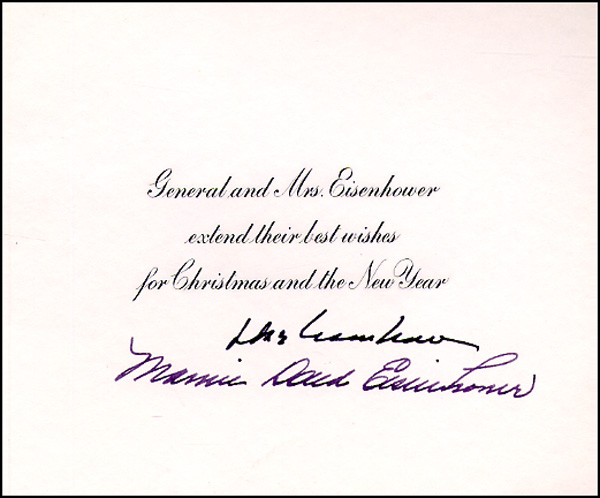 General and Mrs. Eisenhower
extend their best wishes
for Christmas and the New Year
Dwight Eisenhower
Mamie Doud Eisenhower